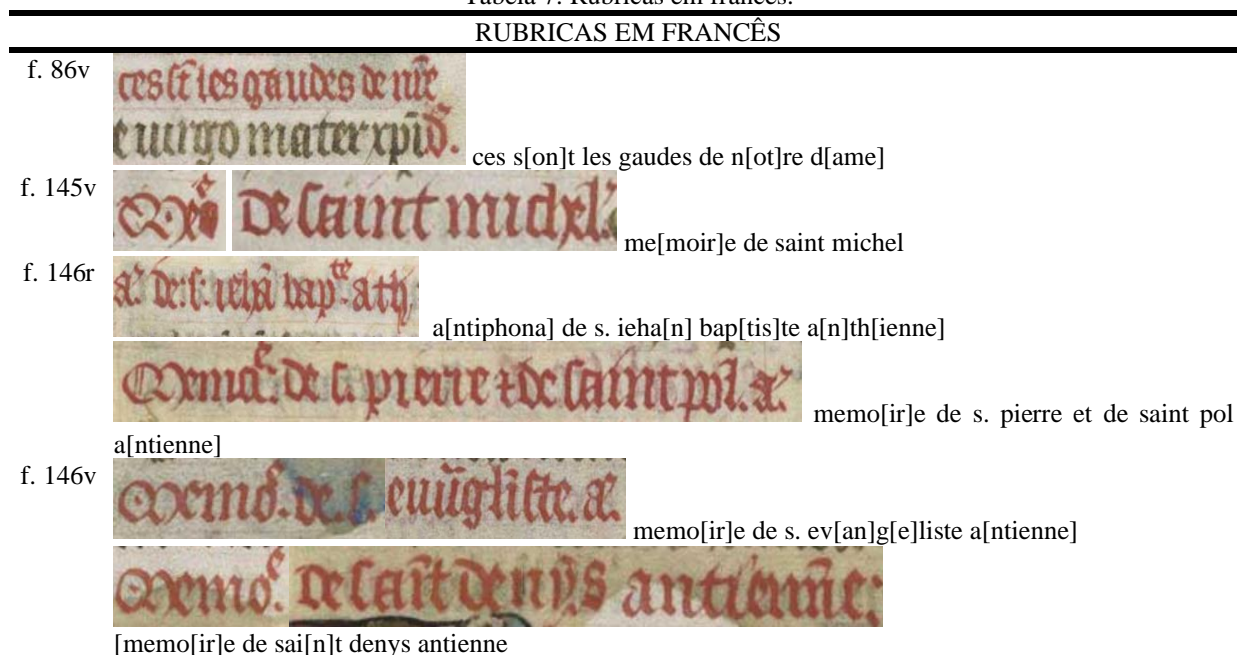 Tabela 7. Rubricas em francês.
RUBRICAS EM FRANCÊS
f. 86v
ces st les gaudes de nre
e uirgo mater xpi d.
ces s[on]t les gaudes de n[ot]re d[ame]
f. 145v
de saint michel
me[moir]e de saint michel
f. 146r
a. de. s. ieha bap te. ath
a[ntiphona] de s. ieha[n] bap[tis]te a[n]th[ienne]
Memoe. de s. pierre et de saint pol. a.
memo[ir]e de s. pierre et de saint pol
a[ntienne]
f. 146v
Memoe. de s. euugliste. a.
memo[ir]e de s. ev[an]g[e]liste a[ntienne]
Memoe. de sait denys antienne:
[memo[ir]e de sai[n]t denys antienne